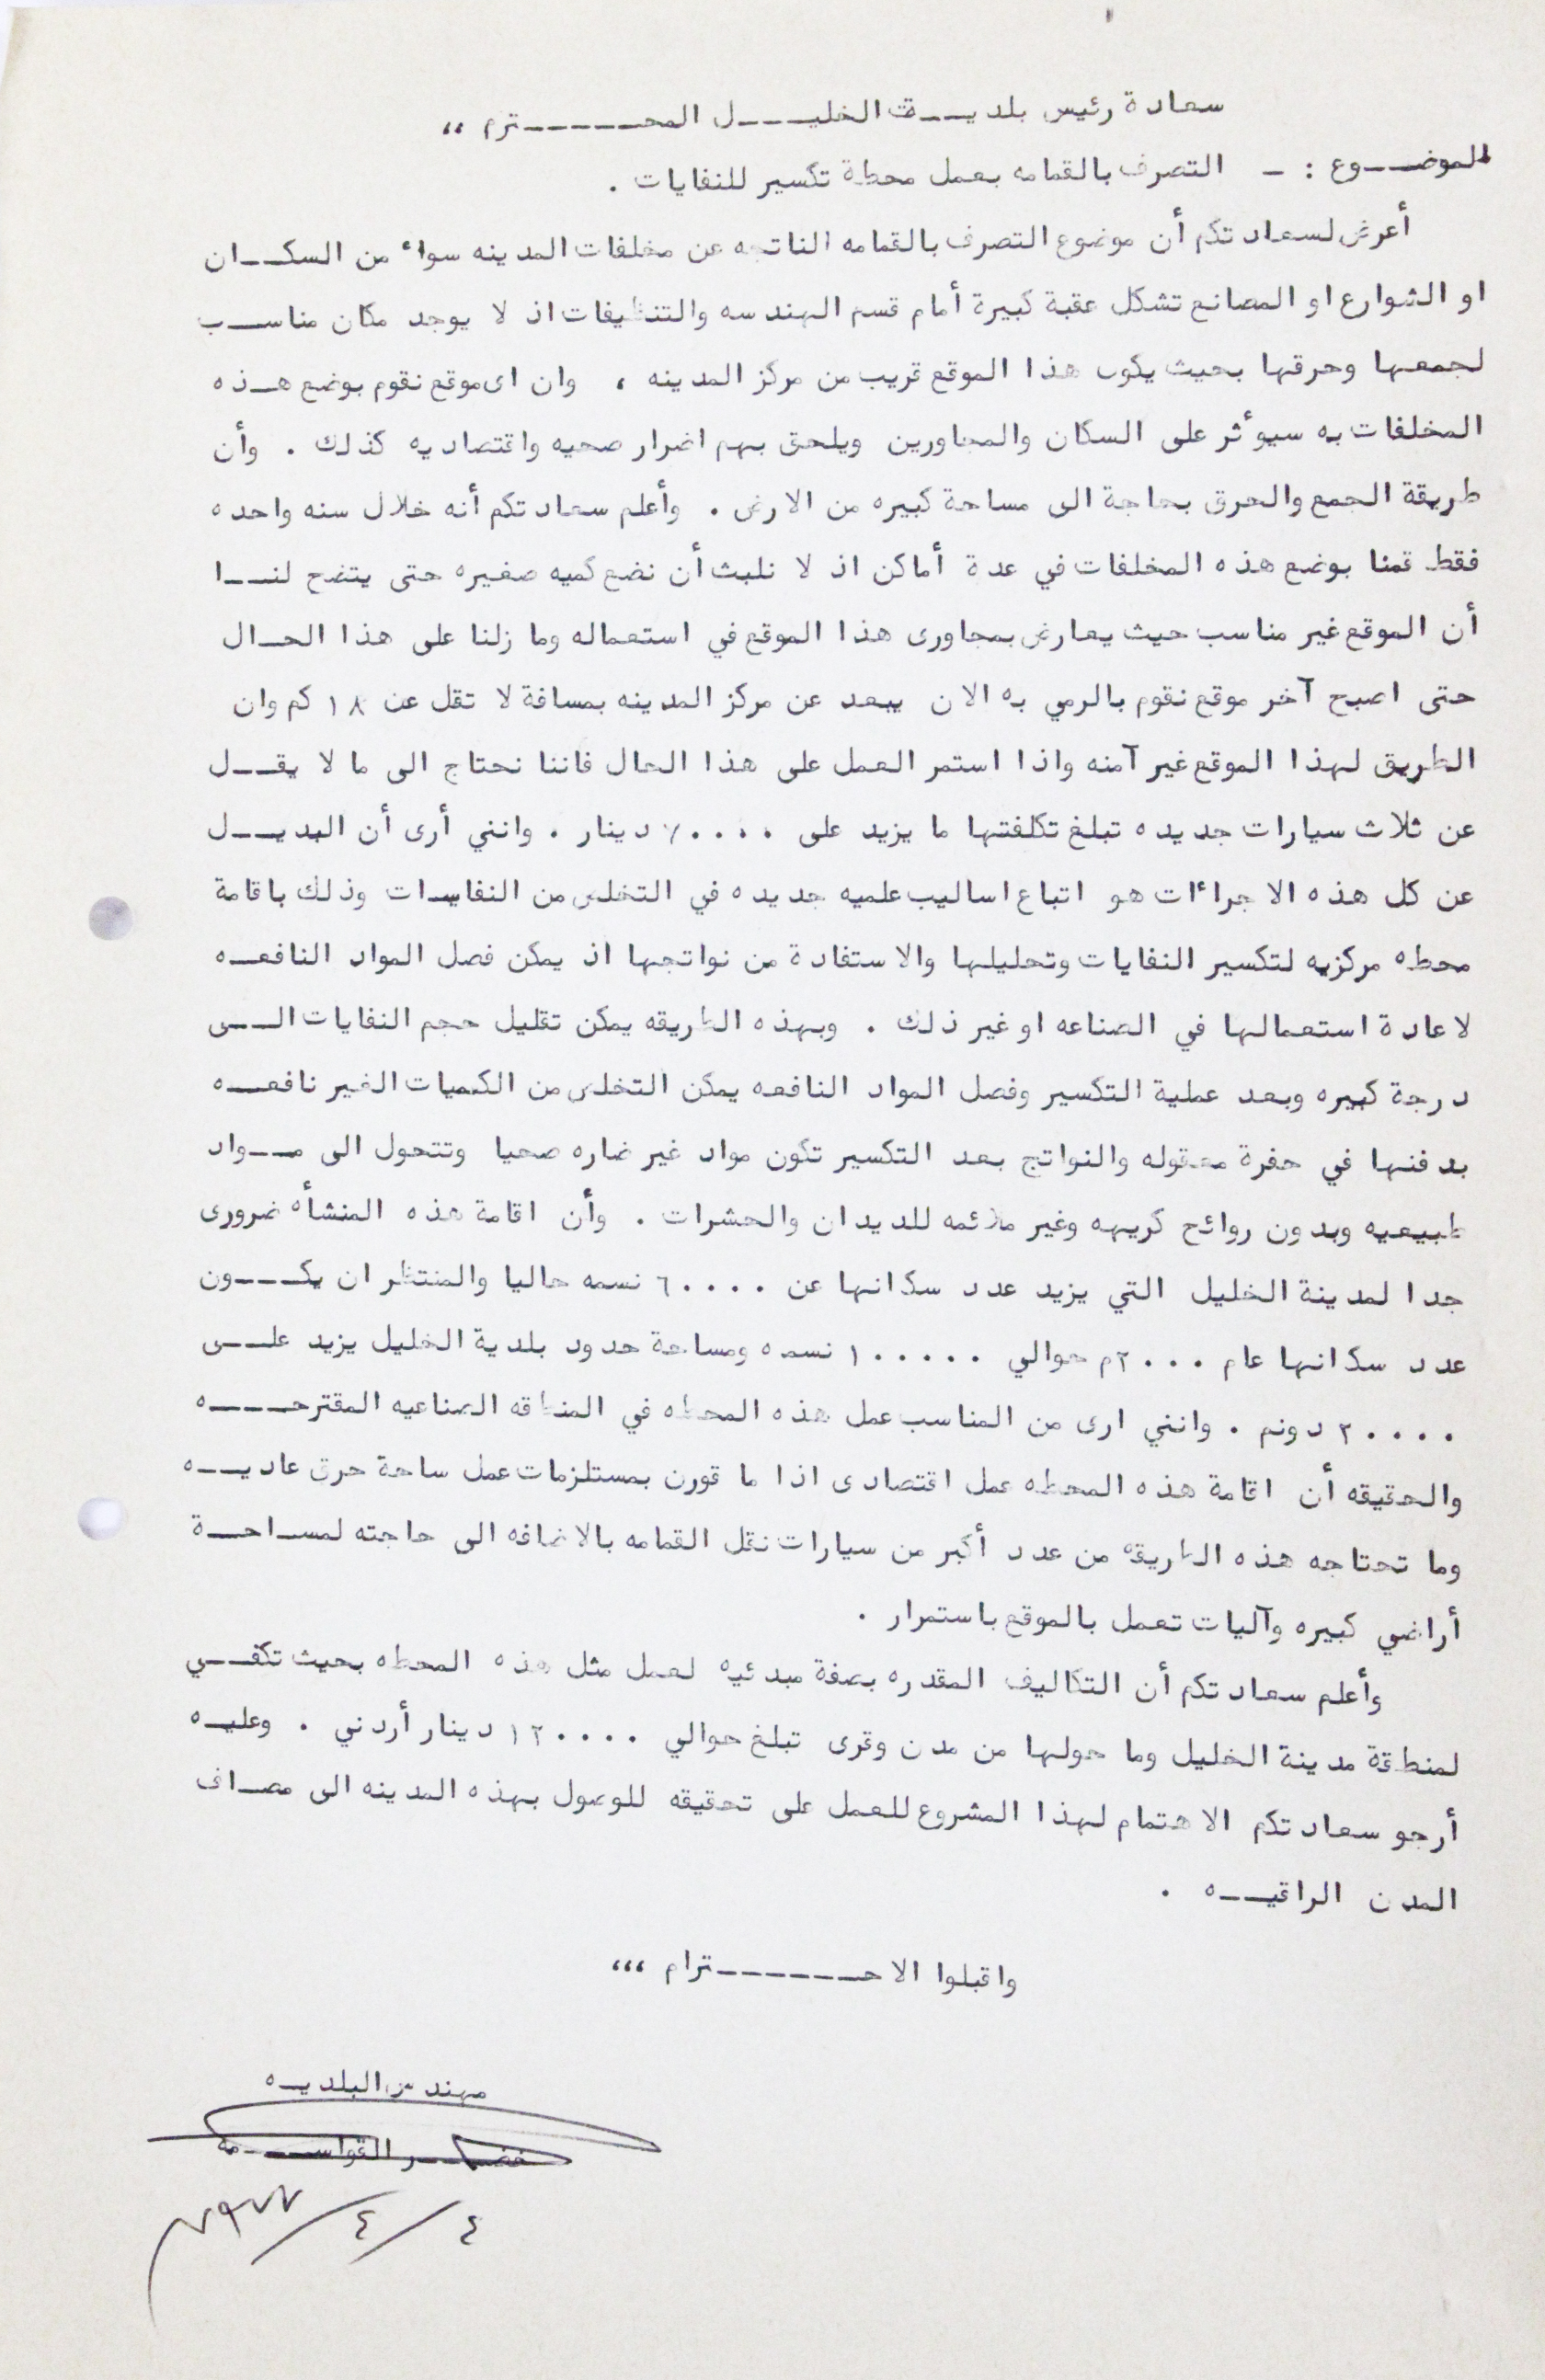 سعادة رئيس بلديـــة الخليـــل المحــــــترم ،،
الموضــوع : ـ التصرف بالقمامه بعمل محطة تكسير للنفايات .
أعرض لسعادتكم أن موضوع التصرف بالقمامه الناتجه عن مخلفات المدينه سواء من السكــان
او الشوارع او المصانع تشكل عقبة كبيرة أمام قسم الهندسه والتنظيفات اذ لا يوجد مكان مناســب
لجمعها وحرقها بحيث يكون هذا الموقع قريب من مركز المدينه ، وان اى موقع نقوم بوضع هــذه
المخلفات به سيوٴثر على السكان والمجاورين ويلحق بهم اضرار صحيه واقتصاديه كذلك . وأن
طريقة الجمع والحرق بحاجة الى مساحة كبيره من الارض . وأعلم سعادتكم أنه خلال سنه واحده
فقط قمنا بوضع هذه المخلفات في عدة أماكن اذ لا نلبث أن نضع كميه صغيره حتى يتضح لنــا
أن الموقع غير مناسب حيث يعارض بمجاورى هذا الموقع في استعماله وما زلنا على هذا الحــال
حتى اصبح آخر موقع نقوم بالرمي به الان يبعد عن مركز المدينه بمسافة لا تقل عن ١٨ كم وان
الطريق لهذا الموقع غير آمنه واذا استمر العمل على هذا الحال فاننا نحتاج الى ما لا يقــل
عن ثلاث سيارات جديده تبلغ تكلفتها ما يزيد على ٧٠٠٠٠ دينار . وانني أرى أن البديــل
عن كل هذه الاجراءات هو اتباع اساليب علميه جديده في التخلص من النفايـات وذلك باقامة
محطه مركزيه لتكسير النفايات وتحليلها والاستفادة من نواتجها اذ يمكن فصل المواد النافعــه
لاعادة استعمالها في الصناعه او غير ذلك . وبهذه الطريقه يمكن تقليل حجم النفايات الــى
درجة كبيره وبعد عملية التكسير وفصل المواد النافعه يمكن التخلص من الكميات الغير نافعــه
بدفنها في حفرة معقوله والنواتج بعد التكسير تكون مواد غير ضاره صحيا وتتحول الى مــواد
طبيعيه وبدون روائح كريهه وغير ملائمه للديدان والحشرات . وأن اقامة هذه المنشأه ضرورى
جدا لمدينة الخليل التي يزيد عدد سكانها عن ٦٠٠٠٠ نسمه حاليا والمنتظر ان يكـــون
عدد سكانها عام ٢٠٠٠م حوالي ١٠٠٠٠٠ نسمه ومساحة حدود بلدية الخليل يزيد علــى
٢٠٠٠٠ دونم . وانني ارى من المناسب عمل هذه المحطه في المنطقه الصناعيه المقترحـــه
والحقيقه أن اقامة هذه المحطه عمل اقتصادى اذا ما قورن بمستلزمات عمل ساحة حرق عاديــه
وما تحتاجه هذه الطريقه من عدد أكبر من سيارات نقل القمامه بالاضافه الى حاجته لمســاحــة
أراضي كبيره وآليات تعمل بالموقع باستمرار .
وأعلم سعادتكم أن التكاليف المقدره بصفة مبدئيه لعمل مثل هذه المحطه بحيث تكفــي
لمنطقة مدينة الخليل وما حولها من مدن وقرى تبلغ حوالي ١٢٠٠٠٠ دينار أردني . وعليــه
أرجو سعادتكم الاهتمام لهذا المشروع للعمل على تحقيقه للوصول بهذه المدينه الى مصــاف
المدن الراقيــه .
واقبلوا الاحـــــــترام ،،،
مهندس البلديـه
خضــــر القواســـمة
٤ / ٤ / ١٩٧٧